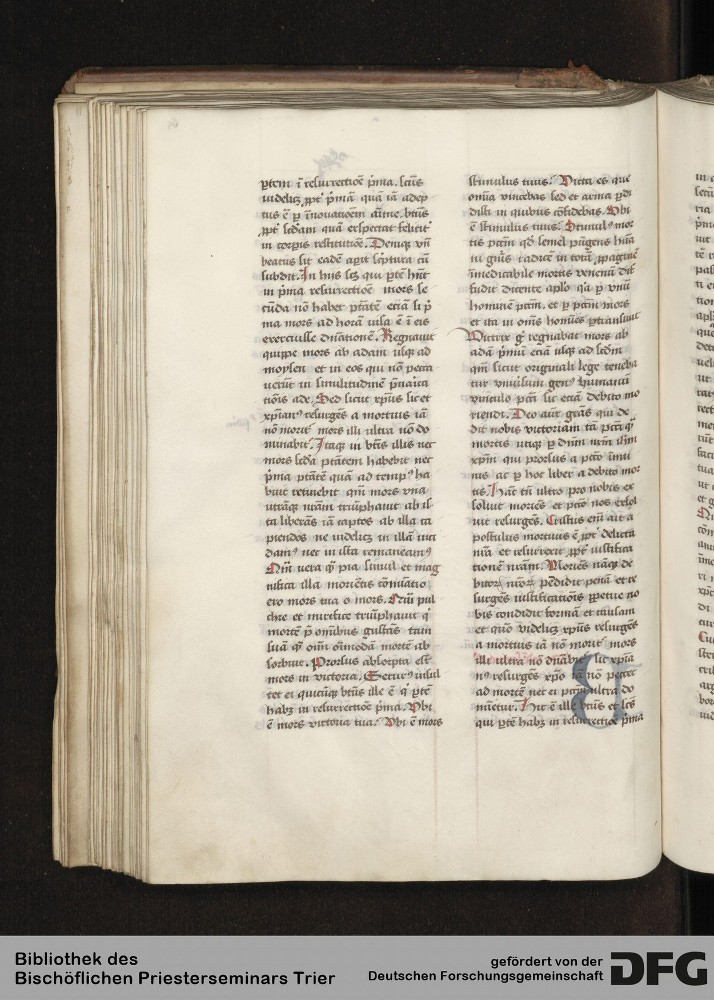 ptem ī resurrectiōe p̄ma. Sctūs
videlicꝫ ꝓpt̄ p̄mā quā iā adep
tus ē ꝑ īnouatioēm aīme. btūs
ꝓpt̄ scd̄am quā exspectat felicit̄
in corpus restitutiōe. Deniqꝫ vn̄
beatus sit eadē aperit scͥptura cū
subdit. In hijs scꝫ qui ꝑtē hn̄t
in p̄ma resurrectioē mors se
cūda nō habet ptātē eciā si p̄
ma mors ad horā visa ē ī eis
exercuisse dn̄ationē. Regnauit
quippe mors ab adam vsqꝫ ad
moysen et in eos qui nō pecca
uerūt in similitudinē p̄uarica
tiōis ade. Sed sicut xp̄us sic et
xp̄ianꝰ resurgēs a mortuis iā
nō morit᷑ mors illi vltra nō do
minabit᷑. Itaqꝫ in btīs illis nec
mors scd̄a ptātem habebit nec
p̄ma ptātē quā ad tempꝰ ha
buit retinebit qm̄ mors vna
utrāqꝫ nrām triūphauit ab is
ta liberās iā captos ab illa ca
piendos ne videlicꝫ in illā inci
damꝰ nec in ista remaneamꝰ
Nim̄ vera qꝫ pia simul et mag
nifica illa morientis cōminatio
ero mors tua o mors. Nim̄ pul
chre et mirifice triūphauit qͥ
mortē p̄ omnibus gustās tam
suā qꝫ oīm oīmodā mortē ab
sorbuit. Prorsus absorpta est
mors in victoria. Securꝰ insul
tet ei quicūqꝫ btūs ille ē qͥ ꝑtē
habꝫ in resurrectiōe p̄ma. Vbi
ē mors victoria tua? Vbi ē mors
stimulus tuus? Victa es que
omīa vincebas sed et arma ꝑdi
disti in quibus cōfidebas. Vbi
ē stimulus tuus. Stimulꝰ mor
tis pctm̄ qd̄ semel pūgens humā
ni gn̄is radicē in totā ꝓpaginē
inmedicabile mortis venenū dif
fudit dicente aplo qͥa ꝑ vnū
hominē pctm̄. et ꝑ pctm̄ mors
et ita in omīs homīes ꝑtransiuit
Victrix gͦ regnabat mors ab
adā p̄mū eciā vsqꝫ ad scd̄m
qm̄ sicut originali lege teneba
tur vniuersum genꝰ humanū
vinculo pctī sic eciā debito mo
riendi. Deo aūt grās qui de
dit nobis victoriam tā pctī qͣꝫ
mortis vtiqꝫ ꝑ dn̄m nrm̄ ihm̄
xpm̄ qui prorsus a pctō immu
nis ac ꝑ hoc liber a debito mor
tis. Hāc tn̄ vltro pro nobis ex
soluit moriēs et pctō nos exsol
uit resurgēs. Cristus em̄ ait a
postulus mortuus ē ꝓpt̄ delicta
nrā et resurrexit ꝓpt̄ iustifica
tionē nrām. Moriēs nāqꝫ de
bitoꝝ nr̄oꝝ pēdidit penā et re
surgēs iustificatiōis ꝑpetue no
bis condidit formā et causam
et quō videlicꝫ xp̄us resurgēs
a mortuis iā nō morit᷑ mors
illi vltra nō dn̄abit᷑ sic xp̄ia
nꝰ resurgēs xp̄o nō peccet
ad mortē nec ei pctm̄ vltra do
minetur. Hic ē ille btūs et sctūs
qui ꝑtē habꝫ in resurrectiōe p̄ma
B
Bibliothek des
Bischöflichen Priesterseminars Trier
gefördert von der
Deutschen Forschungsgemeinschaft
DFG